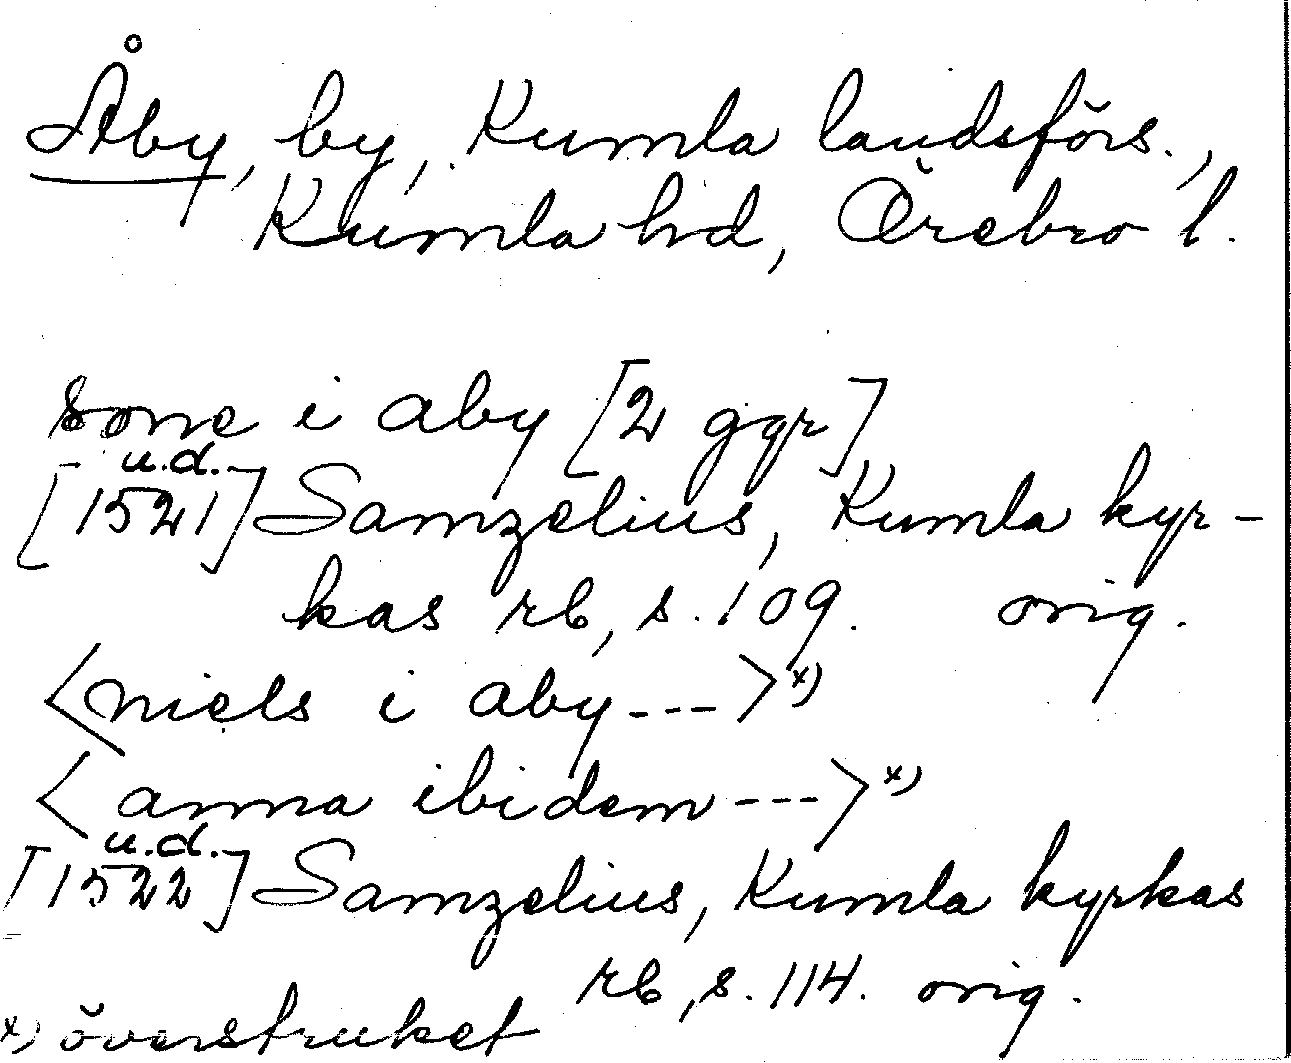 Åby, by, Kumla landsförs.,
Kumla hd, Örebro l.
sone i aby [2 ggr]
u.d.
[1521] Samzelius, Kumla kyr-
kas rb, s. 109. orig.
<niels i aby --->x)
<anna ibidem --->x)
u.d.
[1522] Samzelius, Kumla kyrkas
rb, s. 114. orig.
x) överstruket